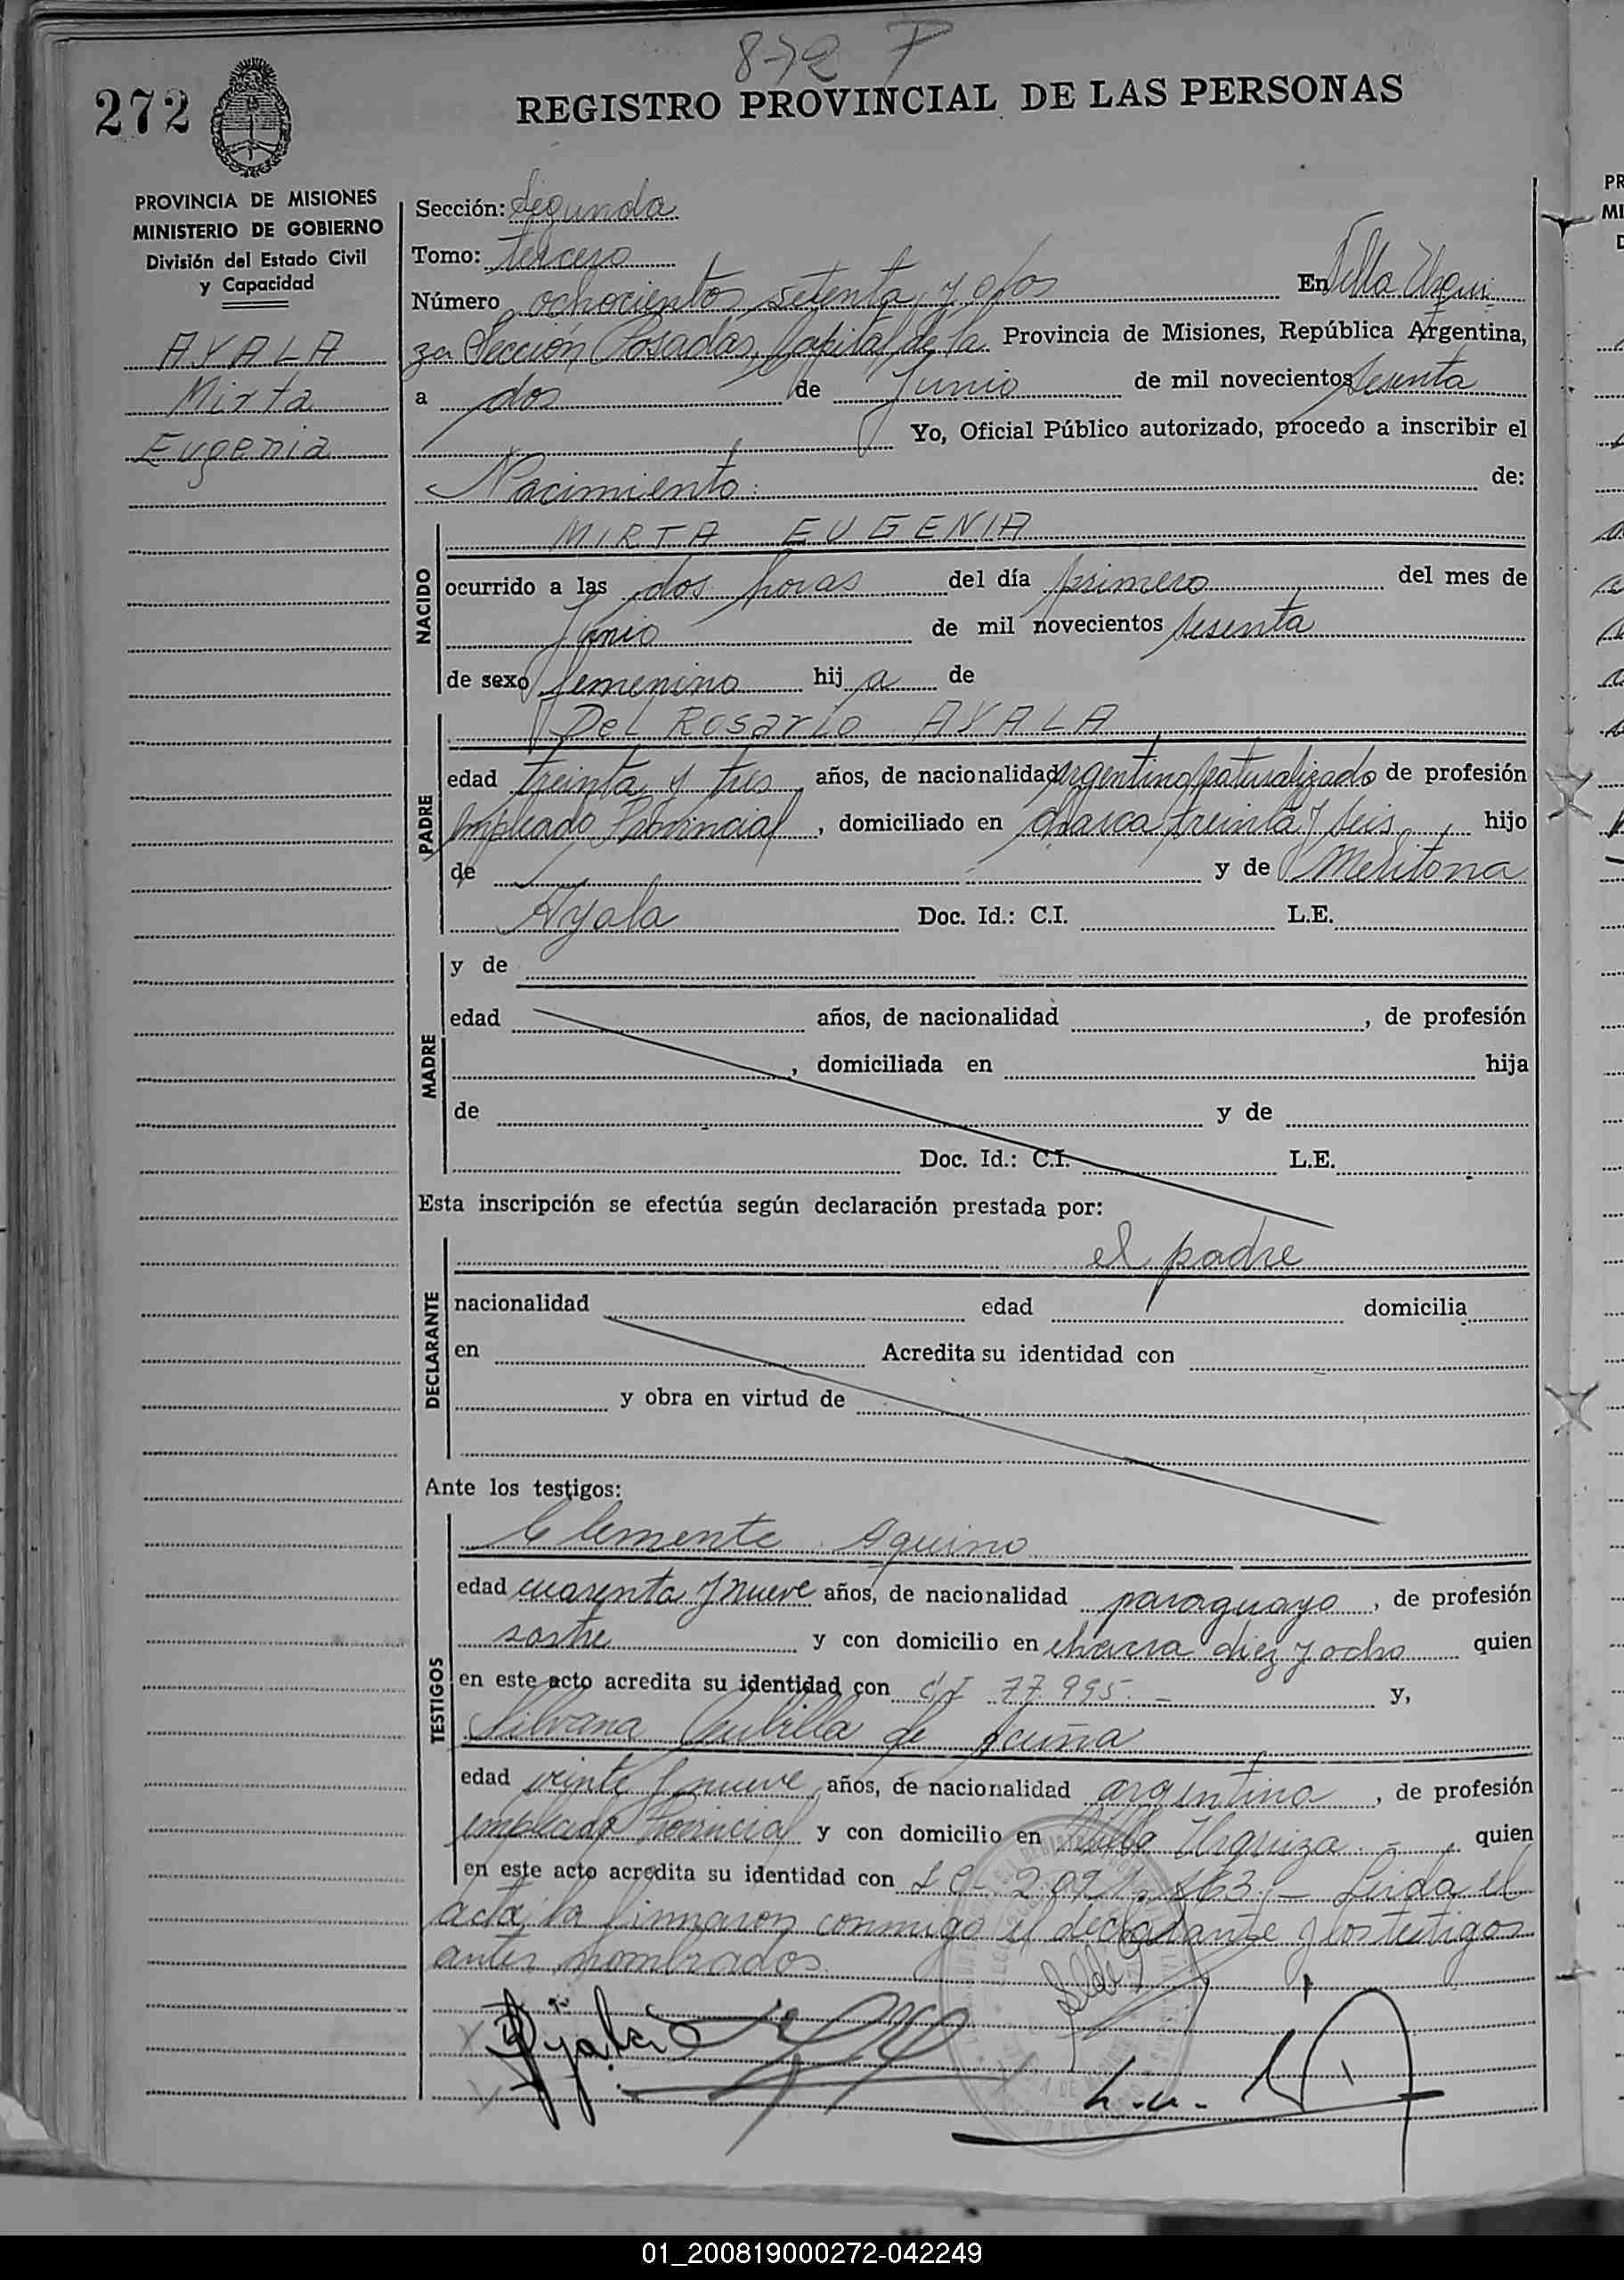 872 P
272
REGISTRO PROVINCIAL DE LAS PERSONAS
PROVINCIA DE MISIONES
MINISTERIO DE GOBIERNO
División del Estado Civil
y Capacidad
AYALA
Mirta
Eugenia
Sección: Segunda
Tomo: tercero
Número ochocientos setenta y dos En Villa Urqui
za Sección Posadas, Capital de la Provincia de Misiones, República Argentina,
a dos de Junio de mil novecientos sesenta
Yo, Oficial Público autorizado, procedo a inscribir el
Nacimiento: de:
NACIDO
MIRTA EUGENIA
ocurrido a las dos horas del día primero del mes de
Junio de mil novecientos sesenta
de sexo femenino hija de
PADRE
Del Rosario AYALA
edad treinta y tres años, de nacionalidad argentino naturalizado de profesión
empleado Provincial, domiciliado en chacra treinta y seis hijo
de y de Melitona
Ayala Doc. Id.: C.I. L.E.
MADRE
y de
edad años, de nacionalidad , de profesión
, domiciliada en hija
de y de
Doc. Id.: C.I. L.E.
Esta inscripción se efectúa según declaración prestada por:
DECLARANTE
el padre
nacionalidad edad domicilia
en Acredita su identidad con
y obra en virtud de
Ante los testigos:
TESTIGOS
Clemente Aquino
edad cuarenta y nueve años, de nacionalidad paraguayo, de profesión
sastre y con domicilio en chacra diez y ocho quien
en este acto acredita su identidad con C.I 77.995.- y,
Silvana de Acuña
edad veinte y nueve años, de nacionalidad argentina, de profesión
empleada Provincial y con domicilio en Villa Urquiza.- , quien
en este acto acredita su identidad con L C- Leida el
acta, la firmaron conmigo el declarante y los testigos
antes nombrados.
01_200819000272-042249